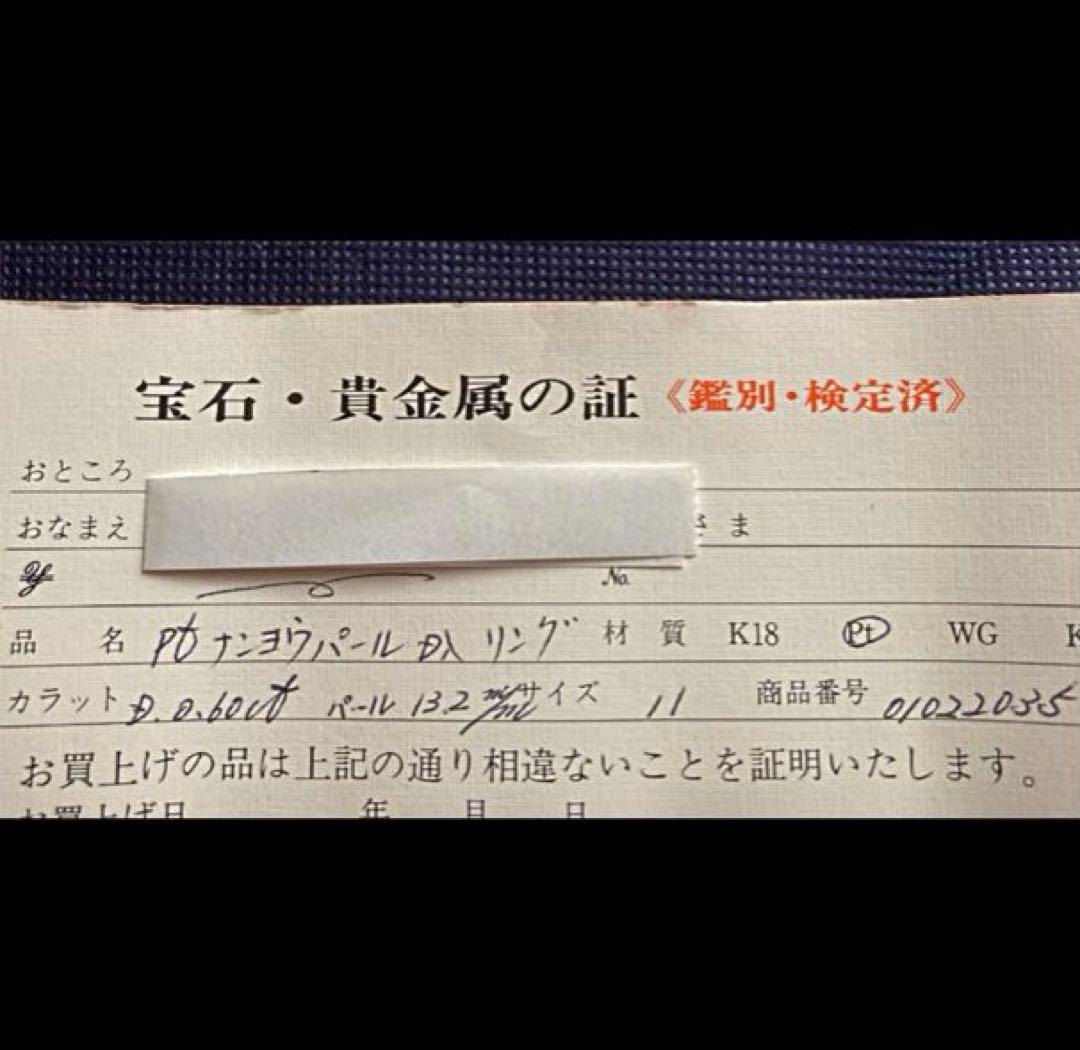 宝石・貴金属の証《鑑別・検定済》
おところ
おなまえ さま
No.
品 名 Pt ナンヨウパール D入 リング 材 質 K18 Pt WG K
カラット D.0.60ct パール 13.2 m/m サイズ 11 商品番号 01022035
お買上げの品は上記の通り相違ないことを証明いたします。
お買上げ日 年 月 日